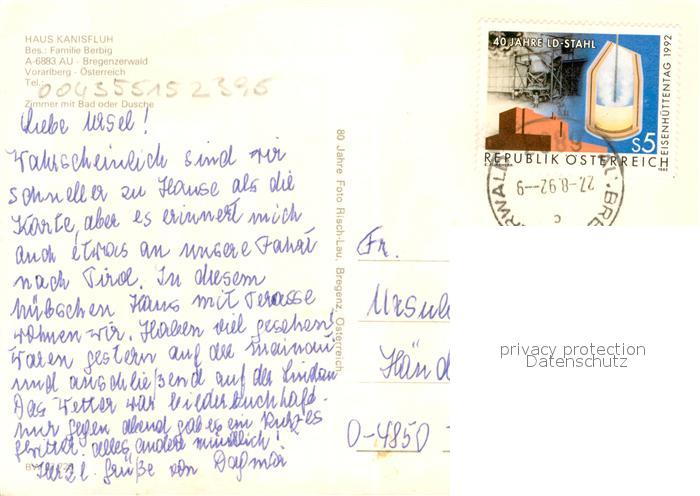 HAUS KANISFLUH
Bes.: Familie Berbig
A-6883 AU - Bregenzerwald
Vorarlberg - Österreich
Tel.: 0043 5515 2395
Zimmer mit Bad oder Dusche
Liebe Ursel!
Wahrscheinlich sind wir
schneller zu Hause als die
Karte, aber es erinnert mich
auch etwas an unsere Fahrt
nach Tirol. In diesem
hübschen Haus mit Terasse
wohnen wir. Haben viel gesehen!
Waren gestern auf der Mainau
und anschließend auf der Lindau
Das Wetter war bilderbuchhaft.
nur gegen abend gab es ein kurzes
Gewitter. alles andere mündlich!
Herzl. Grüße von Dagmar
80 Jahre Foto Risch-Lau, Bregenz, Österreich
40 JAHRE LD-STAHL
EISENHÜTTENTAG 1992
S5
REPUBLIK ÖSTERREICH
1992
27.-8.92--9
c
Fr.
Ursul
Händ
D-4850
privacy protection
Datenschutz